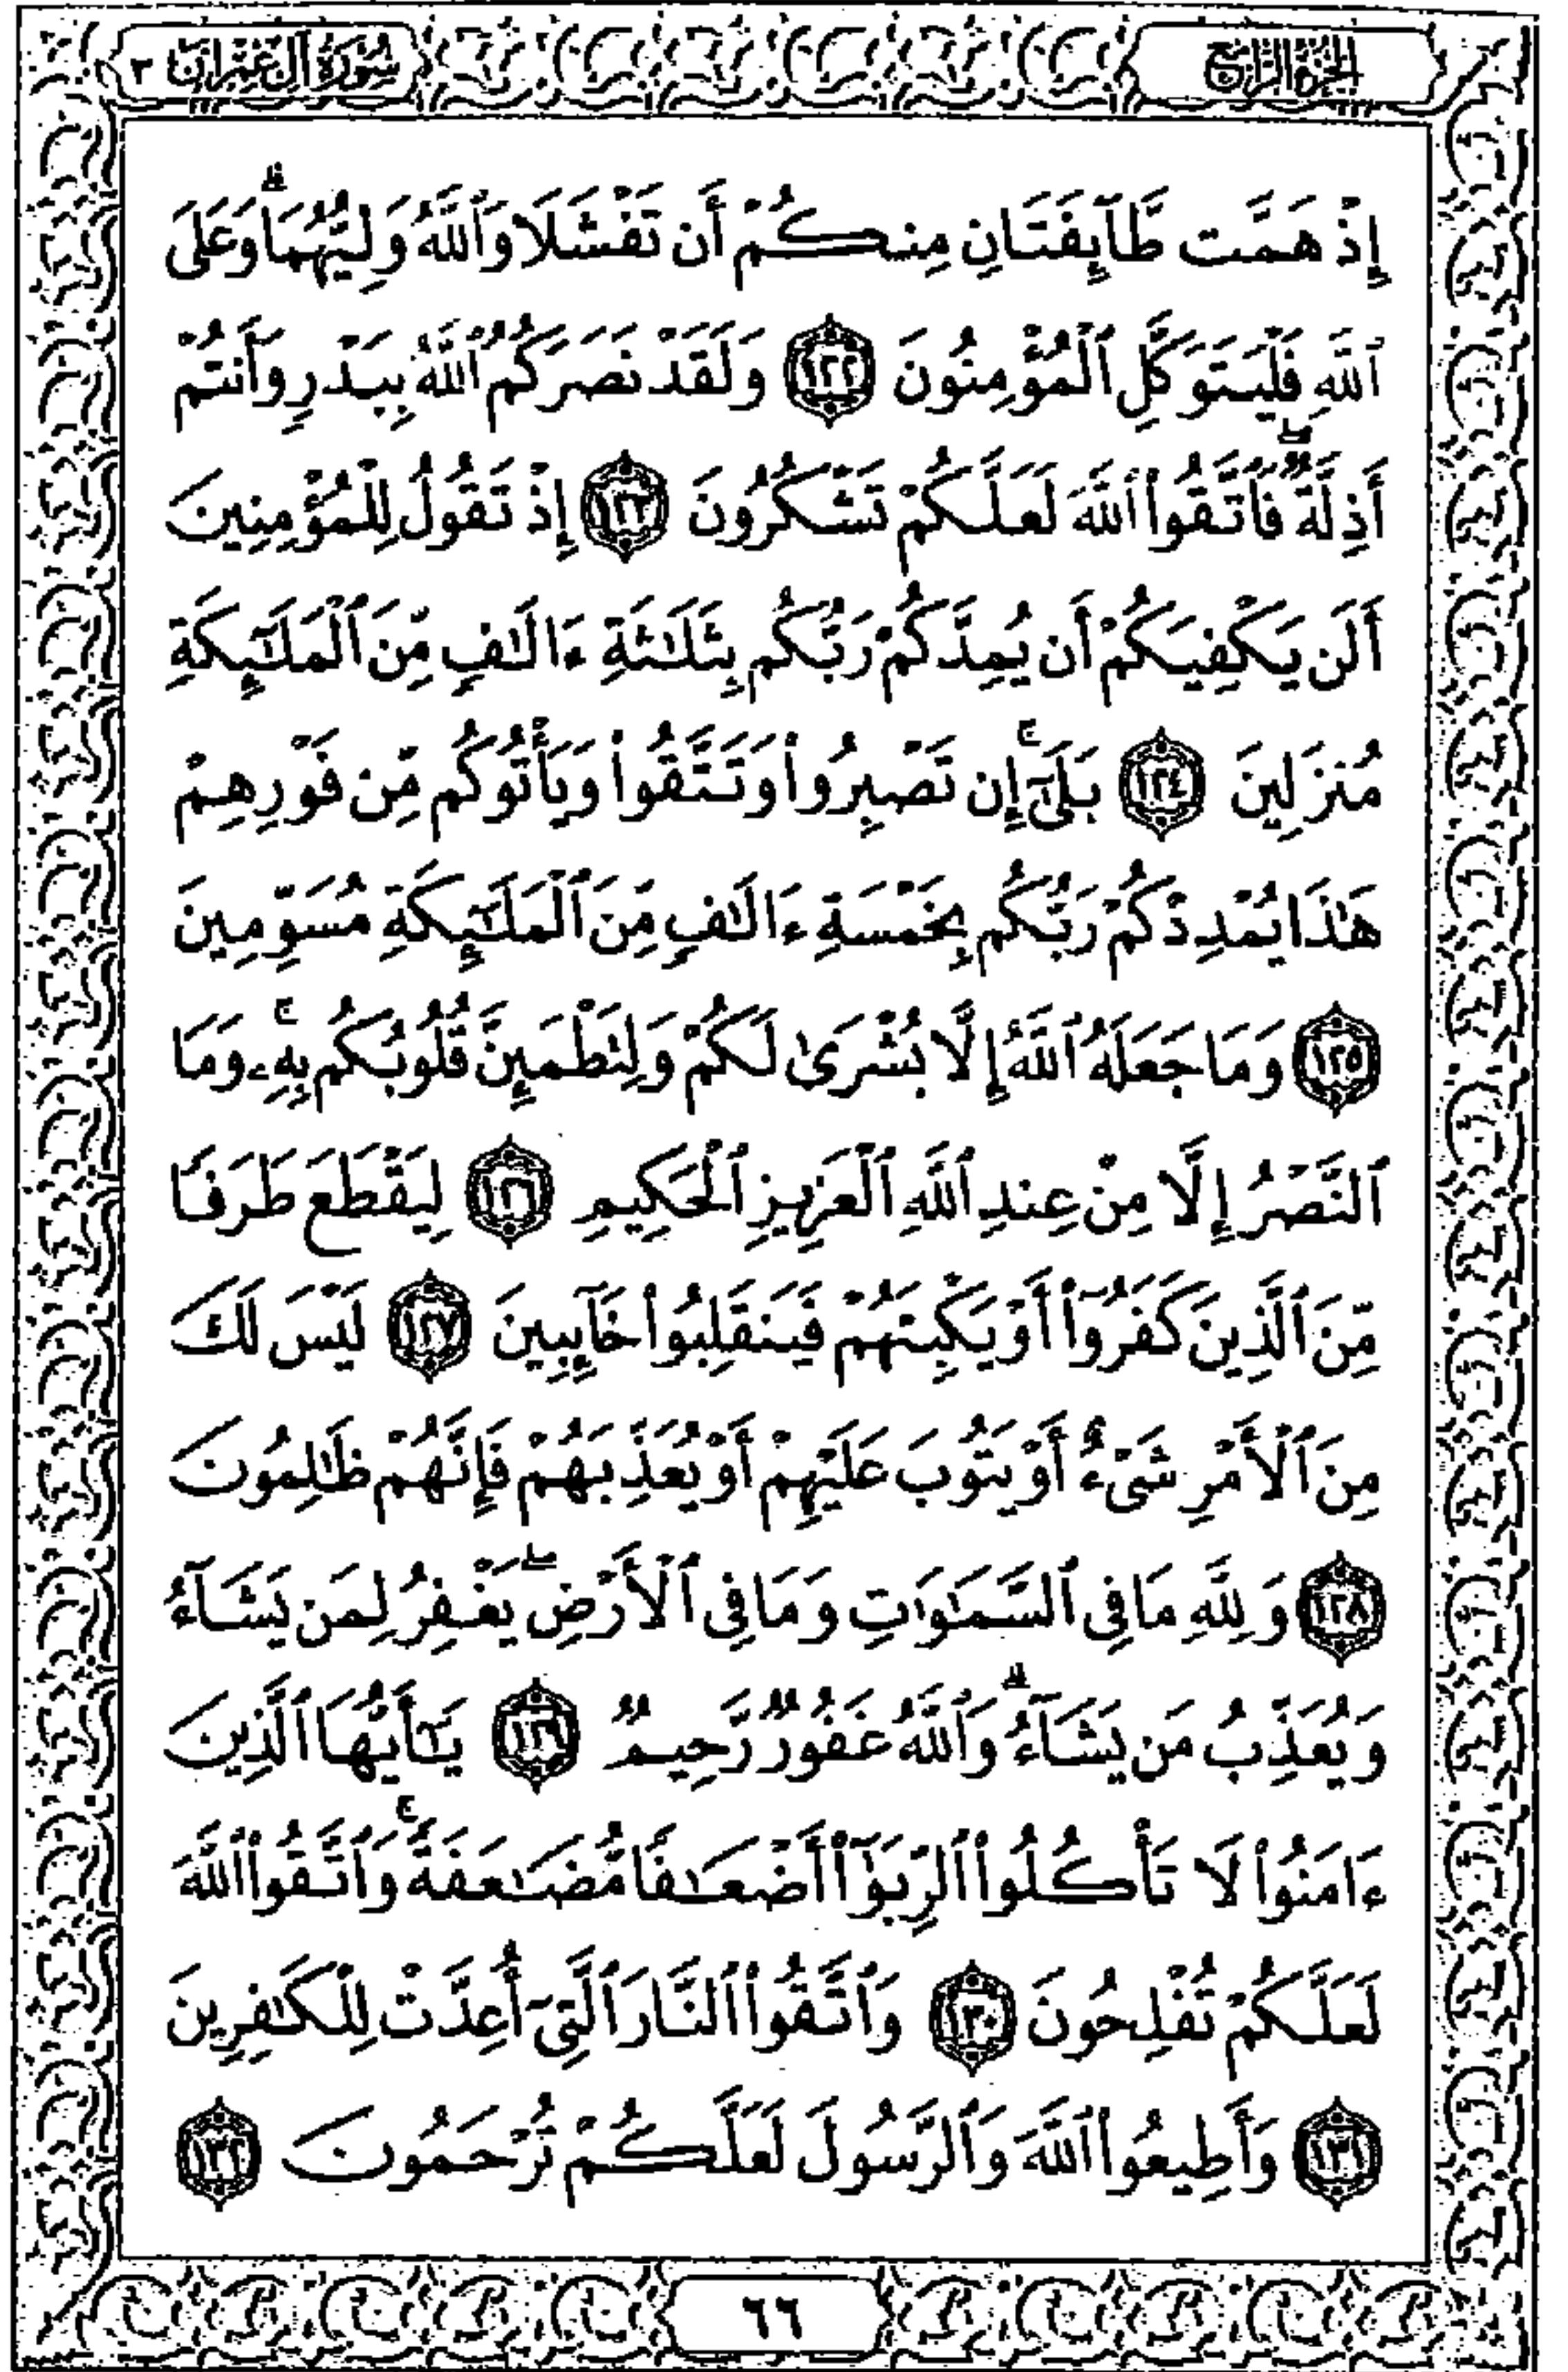 الجزء الرابع
سورة آل عمران ٣
إِذْ هَمَّت طَّآئِفَتَانِ مِنكُمْ أَن تَفْشَلَا وَٱللَّهُ وَلِيُّهُمَا ۗ وَعَلَى
ٱللَّهِ فَلْيَتَوَكَّلِ ٱلْمُؤْمِنُونَ ١٢٢ وَلَقَدْ نَصَرَكُمُ ٱللَّهُ بِبَدْرٍ وَأَنتُمْ
أَذِلَّةٌ ۖ فَٱتَّقُوا۟ ٱللَّهَ لَعَلَّكُمْ تَشْكُرُونَ ١٢٣ إِذْ تَقُولُ لِلْمُؤْمِنِينَ
أَلَن يَكْفِيَكُمْ أَن يُمِدَّكُمْ رَبُّكُم بِثَلَـٰثَةِ ءَالَـٰفٍ مِّنَ ٱلْمَلَـٰٓئِكَةِ
مُنزَلِينَ ١٢٤ بَلَىٰٓ ۚ إِن تَصْبِرُوا۟ وَتَتَّقُوا۟ وَيَأْتُوكُم مِّن فَوْرِهِمْ
هَـٰذَا يُمْدِدْكُمْ رَبُّكُم بِخَمْسَةِ ءَالَـٰفٍ مِّنَ ٱلْمَلَـٰٓئِكَةِ مُسَوِّمِينَ
١٢٥ وَمَا جَعَلَهُ ٱللَّهُ إِلَّا بُشْرَىٰ لَكُمْ وَلِتَطْمَئِنَّ قُلُوبُكُم بِهِۦ ۗ وَمَا
ٱلنَّصْرُ إِلَّا مِنْ عِندِ ٱللَّهِ ٱلْعَزِيزِ ٱلْحَكِيمِ ١٢٦ لِيَقْطَعَ طَرَفًا
مِّنَ ٱلَّذِينَ كَفَرُوٓا۟ أَوْ يَكْبِتَهُمْ فَيَنقَلِبُوا۟ خَآئِبِينَ ١٢٧ لَيْسَ لَكَ
مِنَ ٱلْأَمْرِ شَىْءٌ أَوْ يَتُوبَ عَلَيْهِمْ أَوْ يُعَذِّبَهُمْ فَإِنَّهُمْ ظَـٰلِمُونَ
١٢٨ وَلِلَّهِ مَا فِى ٱلسَّمَـٰوَٰتِ وَمَا فِى ٱلْأَرْضِ ۚ يَغْفِرُ لِمَن يَشَآءُ
وَيُعَذِّبُ مَن يَشَآءُ ۗ وَٱللَّهُ غَفُورٌ رَّحِيمٌ ١٢٩ يَـٰٓأَيُّهَا ٱلَّذِينَ
ءَامَنُوا۟ لَا تَأْكُلُوا۟ ٱلرِّبَوٰٓا۟ أَضْعَـٰفًا مُّضَـٰعَفَةً ۖ وَٱتَّقُوا۟ ٱللَّهَ
لَعَلَّكُمْ تُفْلِحُونَ ١٣٠ وَٱتَّقُوا۟ ٱلنَّارَ ٱلَّتِىٓ أُعِدَّتْ لِلْكَـٰفِرِينَ
١٣١ وَأَطِيعُوا۟ ٱللَّهَ وَٱلرَّسُولَ لَعَلَّكُمْ تُرْحَمُونَ ١٣٢
٦٦